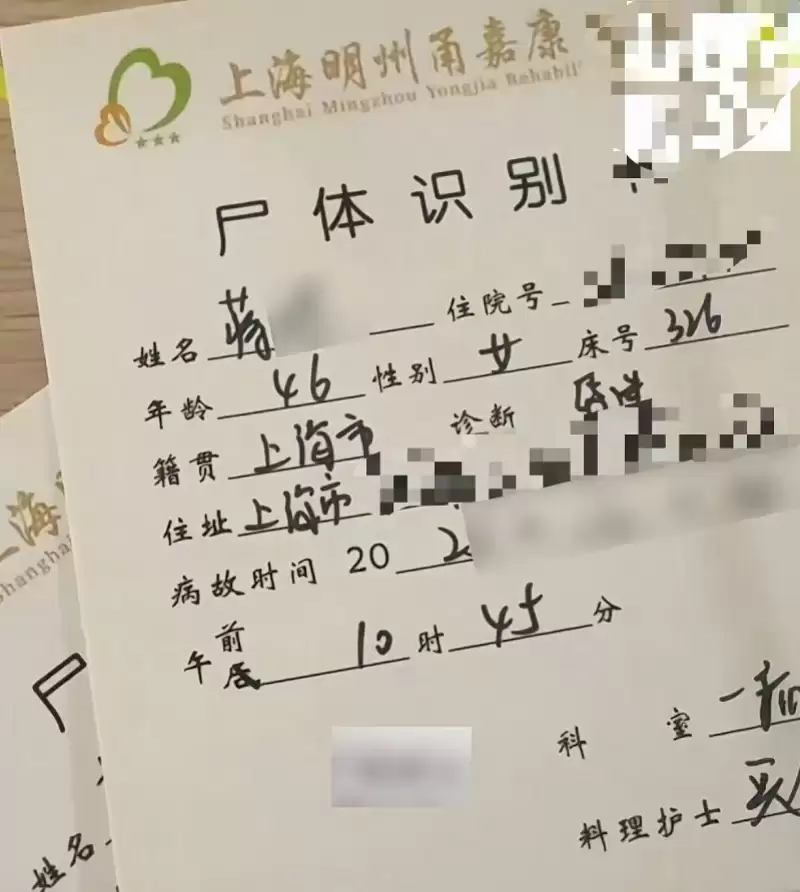 上海明州甬嘉康
Shanghai Mingzhou Yongjia Rehabil
尸体识别
姓名 蒋 住院号
年龄 46 性别 女 床号 326
籍贯 上海市 诊断
住址 上海市
病故时间 20 2
午前后 10 时 45 分
科室 一
料理护士
上海
Shanghai
尸
姓名